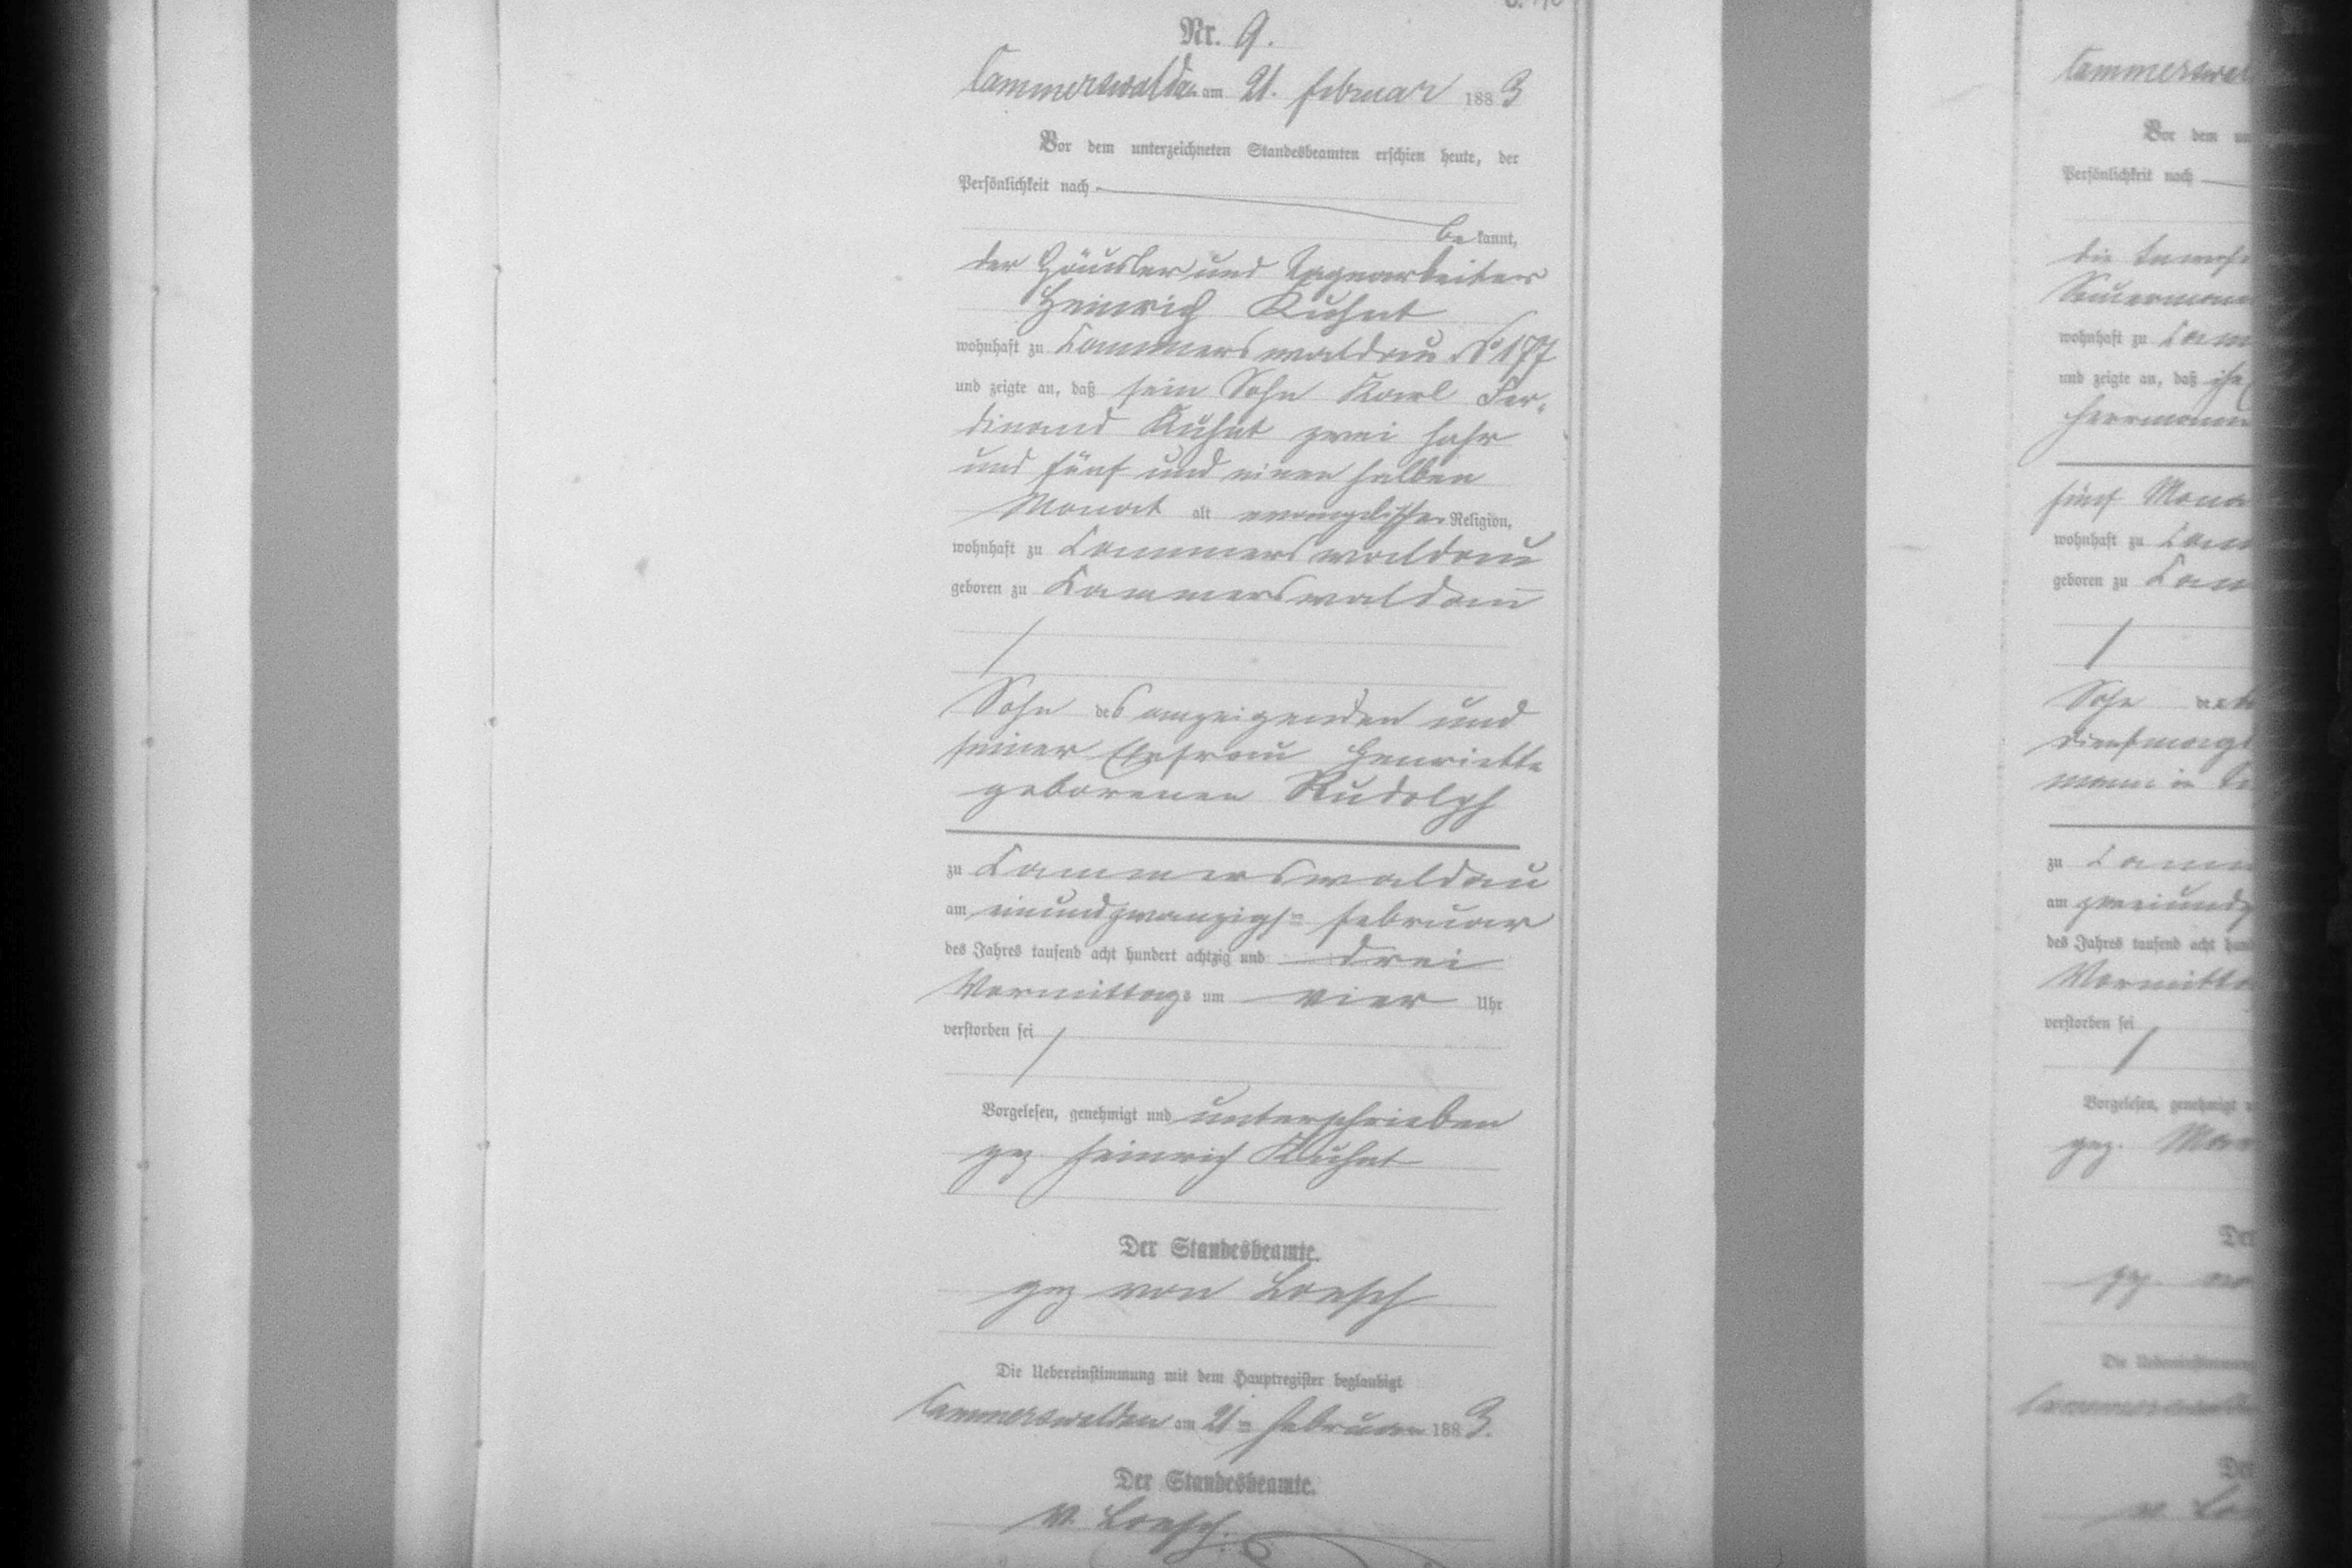 Nr. 9.
Cammerswaldau am 21. Februar 1883
Vor dem unterzeichneten Standesbeamten erschien heute, der
Persönlichkeit nach
bekannt,
der Häusler und Tagearbeiter
Heinrich Kuhnt
wohnhaft zu Cammerswaldau No 177
und zeigte an, daß sein Sohn Karl Fer-
dinand Kuhnt zwei Jahr
und fünf und einen halben
Monat alt evangelischer Religion,
wohnhaft zu Cammerswaldau
geboren zu Cammerswaldau
Sohn des anzeigenden und
seiner Ehefrau Henriette
geborenen Rudolph
zu Cammerswaldau
am einundzwanzigsten Februar
des Jahres tausend acht hundert achtzig und drei
Vormittags um vier Uhr
verstorben sei
Vorgelesen, genehmigt und unterschrieben
gez Heinrich Kuhnt
Der Standesbeamte.
gez von Loesch
Die Uebereinstimmung mit dem Hauptregister beglaubigt
Cammerswaldau am 21ten Februar 1883.
Der Standesbeamte.
v. Loesch.
Vor dem
Persönlichkeit nach
wohnhaft zu
und zeigte an, daß
fünf
wohnhaft zu
geboren zu
Sohn der
zu
am
des Jahres tausend acht
verstorben sei
Vorgelesen, genehmigt
gez.